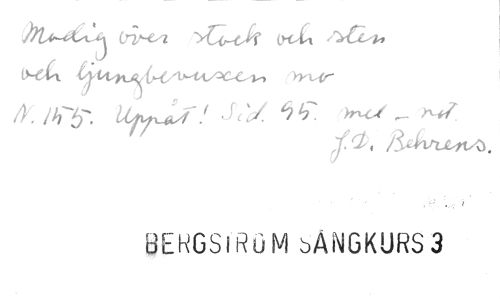 Modig över stock och sten
och ljungbevuxen mo
N. 155. Uppåt! Sid. 95. mel - not.
J.D. Behrens.
BERGSTRÖM SÅNGKURS 3